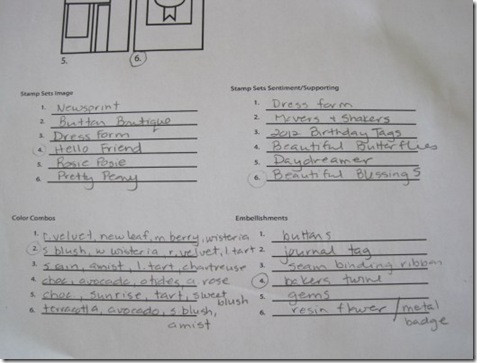 5.
6.
Stamp Sets Image
1. Newsprint
2. Button Boutique
3. Dress form
4. Hello Friend
5. Rosie Posie
6. Pretty Peony
Stamp Sets Sentiment/Supporting
1. Dress form
2. Movers & Shakers
3. 2012 Birthday Tags
4. Beautiful Butterflies
5. Daydreamer
6. Beautiful Blessings
Color Combos
1. r. velvet, new leaf, m berry, wisteria
2. s blush, w wisteria, r. velvet, l tart
3. amist, l. tart, chartreuse
4. choc, avocado, a. rose
5. choc, sunrise, tart, sweet blush
6. terracotta, avocado, s. blush, amist
Embellishments
1. buttons
2. journal tag
3. seam binding ribbon
4. bakers twine
5. gems
6. resin flower / metal badge